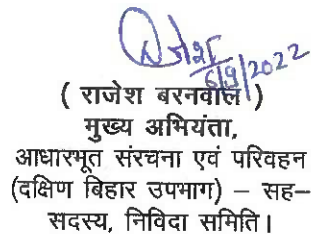 राजेश
6/9/2022
( राजेश बरनवाल )
मुख्य अभियंता,
आधारभूत संरचना एवं परिवहन
(दक्षिण बिहार उपभाग) – सह–
सदस्य, निविदा समिति।